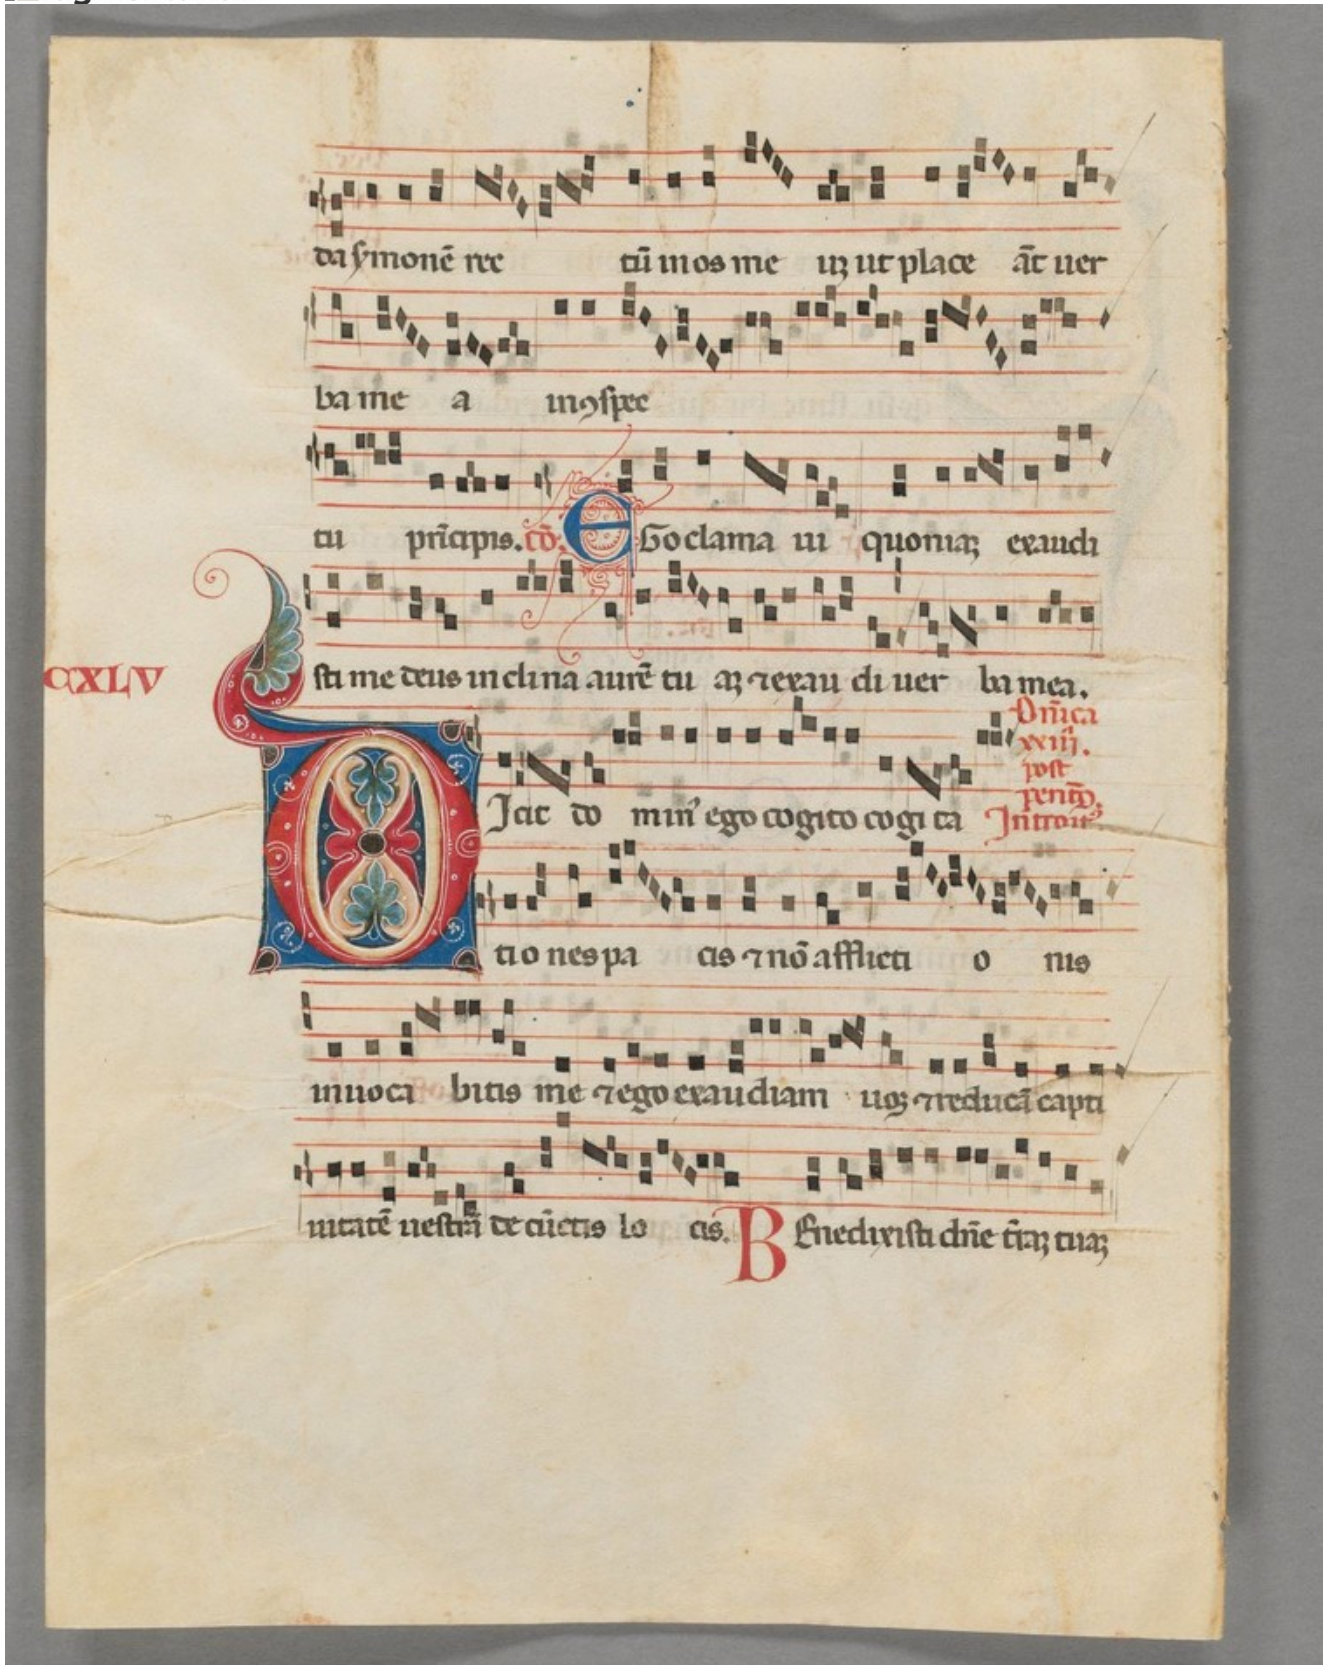 da sŷmonē rec tū in os me uꝫ ut place āt uer
ba me a in ꝯspec
tu prīcipis. cō. EGo clama ui quoniaꝫ exaudi
sti me deus inclina aurē tu aꝫ ⁊ exau di uer ba mea.
CXLV
Dn̄ica
xxiii.
post
pentec̄.
Introitꝰ
DJcit do min' ego cogito cogi ta
tio nes pa cis ⁊ nō afflicti o nis
inuoca bitis me ⁊ ego exaudiam uoꝫ ⁊ reducā capti
uitatē uestrā de cūctis lo cis. Benedixisti dn̄e t̄raꝫ tuaꝫ